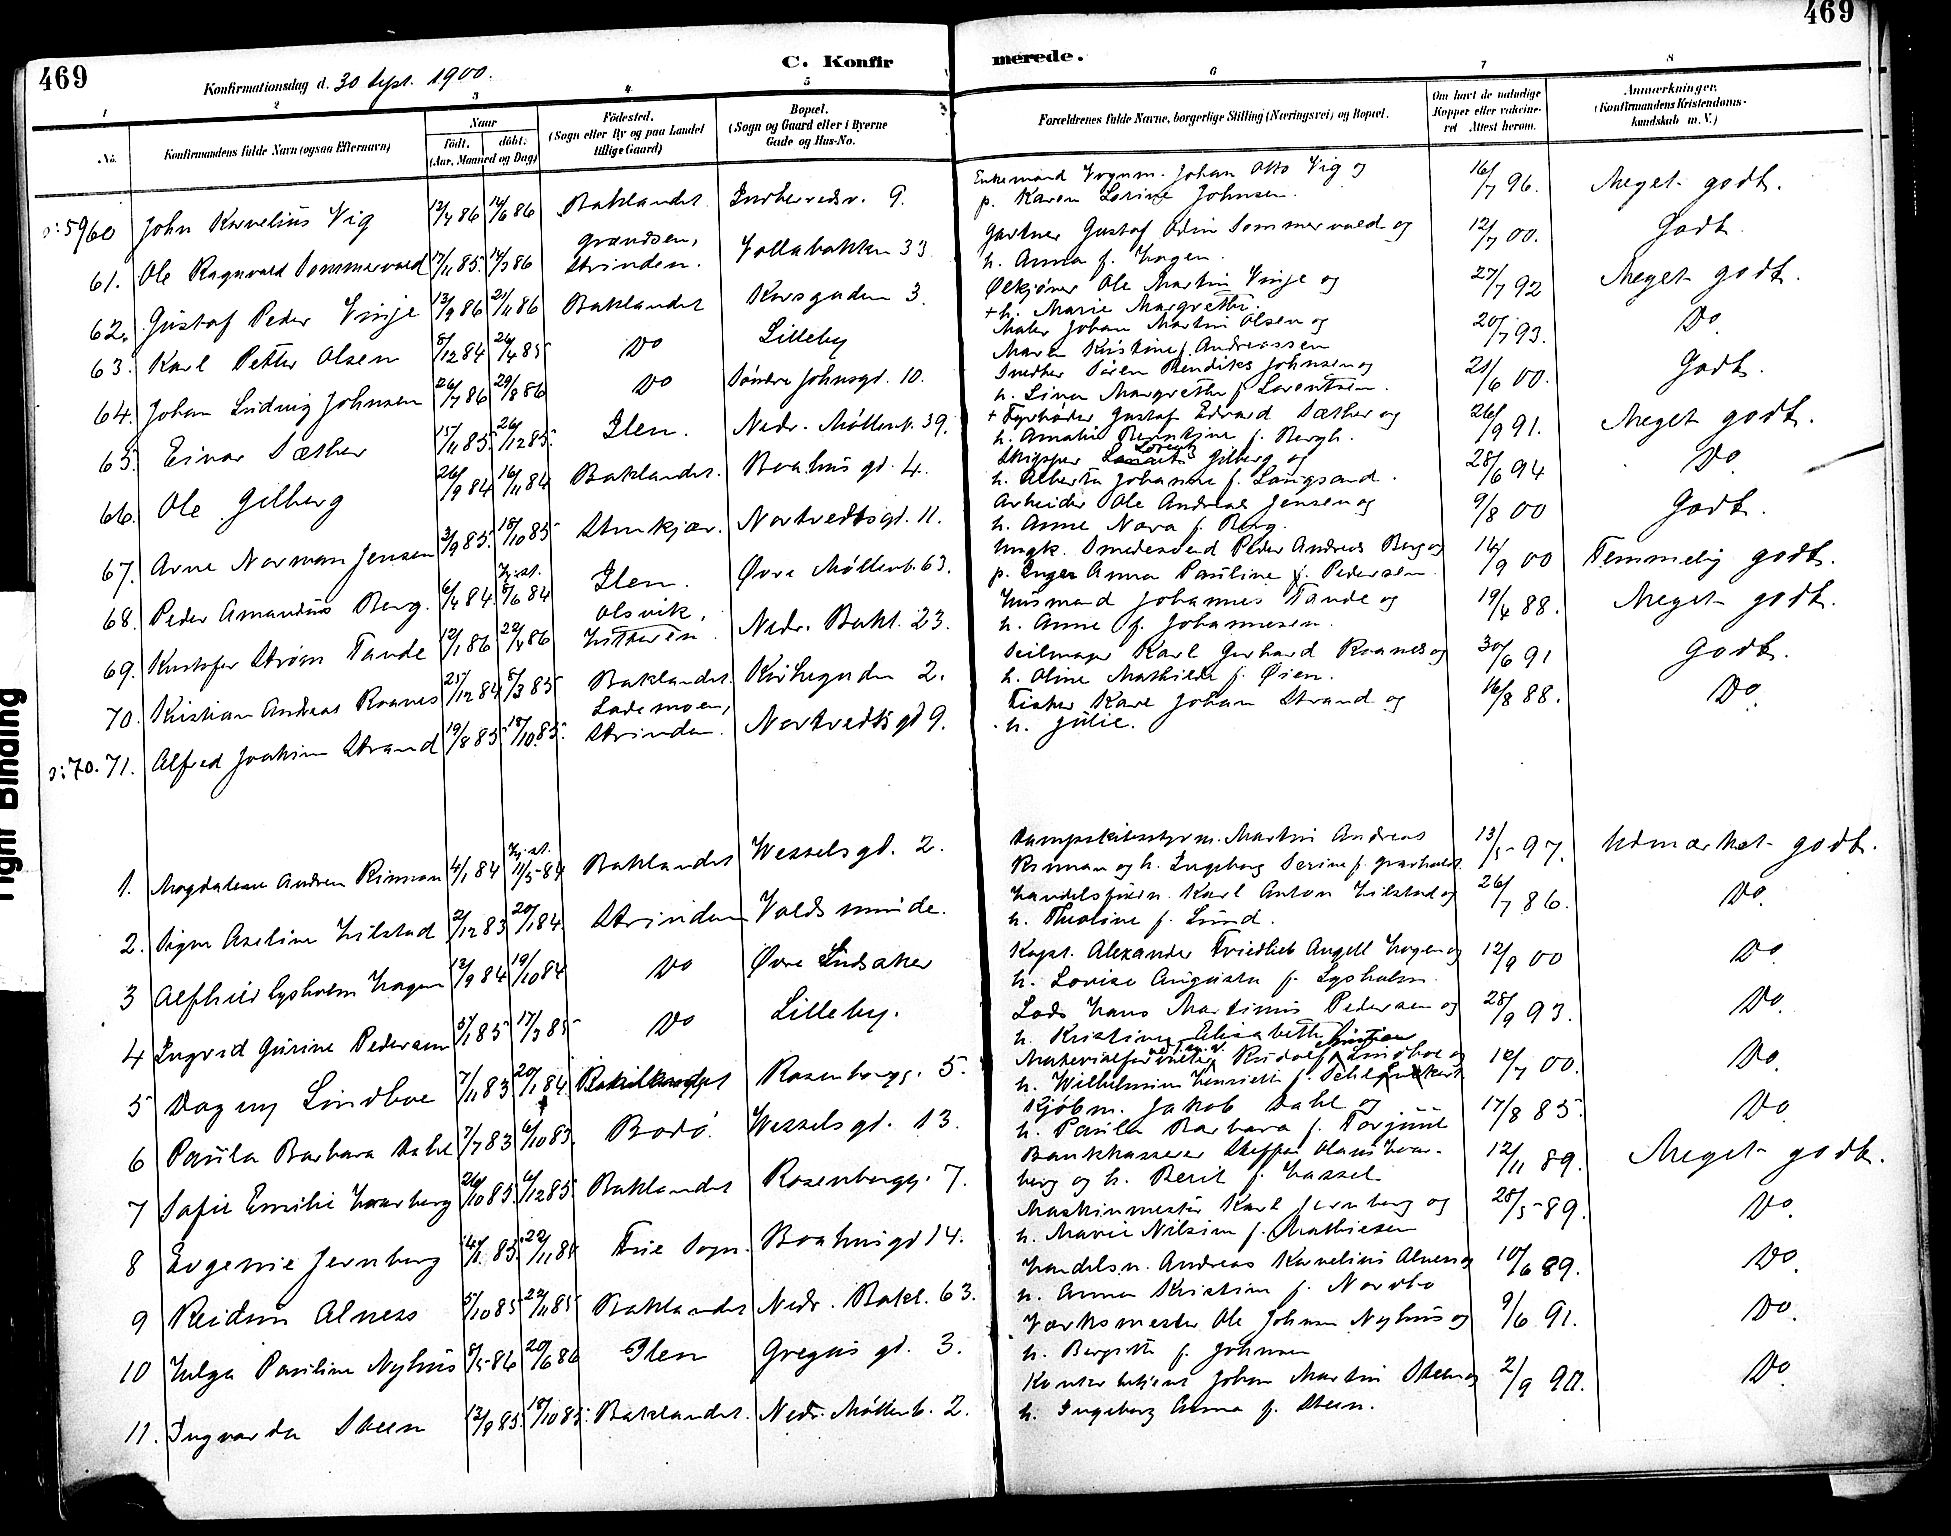 469
469
C. Konfirmerede.
Konfirmationsdag d. 30 Sept. 1900.
1 2 3 4 5 6 7 8
No.
Konfirmandens fulde Navn (ogsaa Efternavn)
Naar født. døbt. (Aar, Maaned og Dag)
Fødested. (Sogn eller By og paa Landet tillige Gaard)
Bopæl. (Sogn og Gaard eller i Byerne Gade og Hus-No.
Forældrenes fulde Navne, borgerlige Stilling (Næringsvei) og Bopæl.
Om havt de naturlige Kopper eller vaccineret Attest herom.
Anmærkninger. (Konfirmandens Kristendomskundskab m. V.)
ɔ: 59 60 John Kornelius Vig 12/4 86 14/6 86 Baklandet Indherredsv. 9. Enkemand Vognm. Johan Otto Vig og p. Karen Lorine Johnsen. 16/7 96. Meget godt.
61. Ole Ragnvald Sommervold 17/11 85. 14/3 86 Strinden. Vollabakken 33 Gartner Gustaf Odin Sommervold og h. Anna f. Hagen. 12/7 00. Godt
62. Gustaf Peder Vinje 13/9 86 21/11 86 Baklandet Korsgaden 3. Ølkjører Ole Martin Vinje og + h. Marie Margrethe. 27/7 92 Meget godt.
63. Karl Petter Olsen 8/12 84 26/4 85 Do Lilleby Maler Johan Martin Olsen og Maren Kristine f. Andreassen 20/7 93. Do
64. Johan Ludvig Johnsen 26/7 86 29/8 86 Do Søndre Johnsgd. 10. Snedker Søren Bendiks Johnsen og h. Lina Margrethe f. Lorentsen. 21/6 00. Godt.
65. Einar Sæther 15/11 85. 26/12 85. Ilen. Nedr. Møllenb. 39. + Fyrbøder Gustaf Edvard Sæther og h. Amalie Berntine f. Bergh. 26/9 91. Meget godt.
66. Ole Gilberg 26/9 84 16/11 84 Baklandet. Baahus gd. 4. Skipper Gilberg og h. Alberta Johanne f. Langsand. 28/6 94 Do
67. Arne Norman Jensen 3/9 85. 18/10 85 Stenkjær. Nortvedtsgd. 11. Arbeider Ole Andreas Jensen og h. Anne Nora f. Berg. 9/8 00 Godt.
68. Peder Amandus Berg. 6/4 84. Hj.st. 8/6 84 Ilen. Øvre Møllenb. 63. Ungk. Smedesvend Peder Andreas Berg og p. Inger Anna Pauline f. Pedersen 14/9 00 Temmelig godt.
69. Kristofer Strøm Tande 12/1 86 22/4 86 Olsvik, Hitteren. Nedr. Bakl. 23. Husmand Johannes Tande og h. Anne f. Johannesen. 19/4 88. Meget godt.
70. Kristian Andreas Roanes 25/12 84 8/3 85 Baklandet. Kirkegaden 2. Seilmager Karl Gerhard Roanes og h. Oline Mathilde f. Øien. 30/6 91 Godt.
ɔ: 70. 71. Alfred Joakim Strand 19/8 85 18/10 85. Lademoen, Strinden. Nortvedtsgd 9. Fisker Kare Johan Strand og h. Julie. 16/8 88. Do.
1. Magdalene Andrea Rinnan 4/1 84 Hj.st. 11/5 84 Baklandet Wesselsgd. 2. Dampskibsstyrm. Martin Andreas Rinnan og h. Ingeborg Serine f. 13/5 97. Udmærket godt.
2. Signe Aseline Hilstad 2/12 83 20/1 84. Strinden Voldsminde. Karl Anton Hilstad og h. Thaline f. Lund. 26/7 86. Do.
3 Alfhild Lysholm Hagen 12/9 84 19/10 84 Do Øvre Lidsaker Kapt. Alexander Friedlieb Angell Hagen og h. Lovise Augusta f. Lysholm. 12/9 00 Do.
4 Ingrid Gurine Pedersen 5/1 85 17/3 85 Do Lilleby. Lods Hans Martinus Pedersen og h. Kristine Elisabeth 28/9 93. Do.
5 Dagny Lindboe 7/11 83. 20/1 84. Rosenborgg. 5. Materialforvalter Rudolf Lindboe og h. Wilhelmine Henriette f. 12/7 00. Do.
6 Paula Barbara Dahl 7/7 83 6/10 83. Bodø. Wesselsgd. 13. Kjøbm. Jakob Dahl og h. Paula Barbara f. 17/8 85. Do
7 Sofie Emilie Haarberg 26/10 85. 6/12 85 Baklandet Rosenborgg. 7. Bankkasserer Steffen Claus Haarberg og h. Berit f. Hassel 12/11 89. Meget godt.
8 Evgenie Jernberg 85. 22/11 85 Frue Sogn. Baahusgd 14. Maskinmester Karl Jernberg og h. Marie Nilsine f. Mathiesen 28/5 89. Do.
9 Reidun Alness 5/10 85 22/11 85 Baklandet Nedr. Bakl. 63. Handelsm. Andreas Kornelius Alness og h. Anna Kristine f. Nordbo 10/6 89. Do.
10 Helga Pauline Nyhus 8/5 86 20/6 86 Ilen Gregus gd. 3. Værksmester Ole Johnsen Nyhus og h. Bergitte f. Johnsen 9/6 91. Do.
11. Ingvarda Steen 12/9 85. 18/10 85. Baklandet. Nedr. Møllenb. 2. Kontorbetjent Johan Martin Steen og h. Ingeborg Anna f. Steen. 2/9 90. Do.
Tight Binding